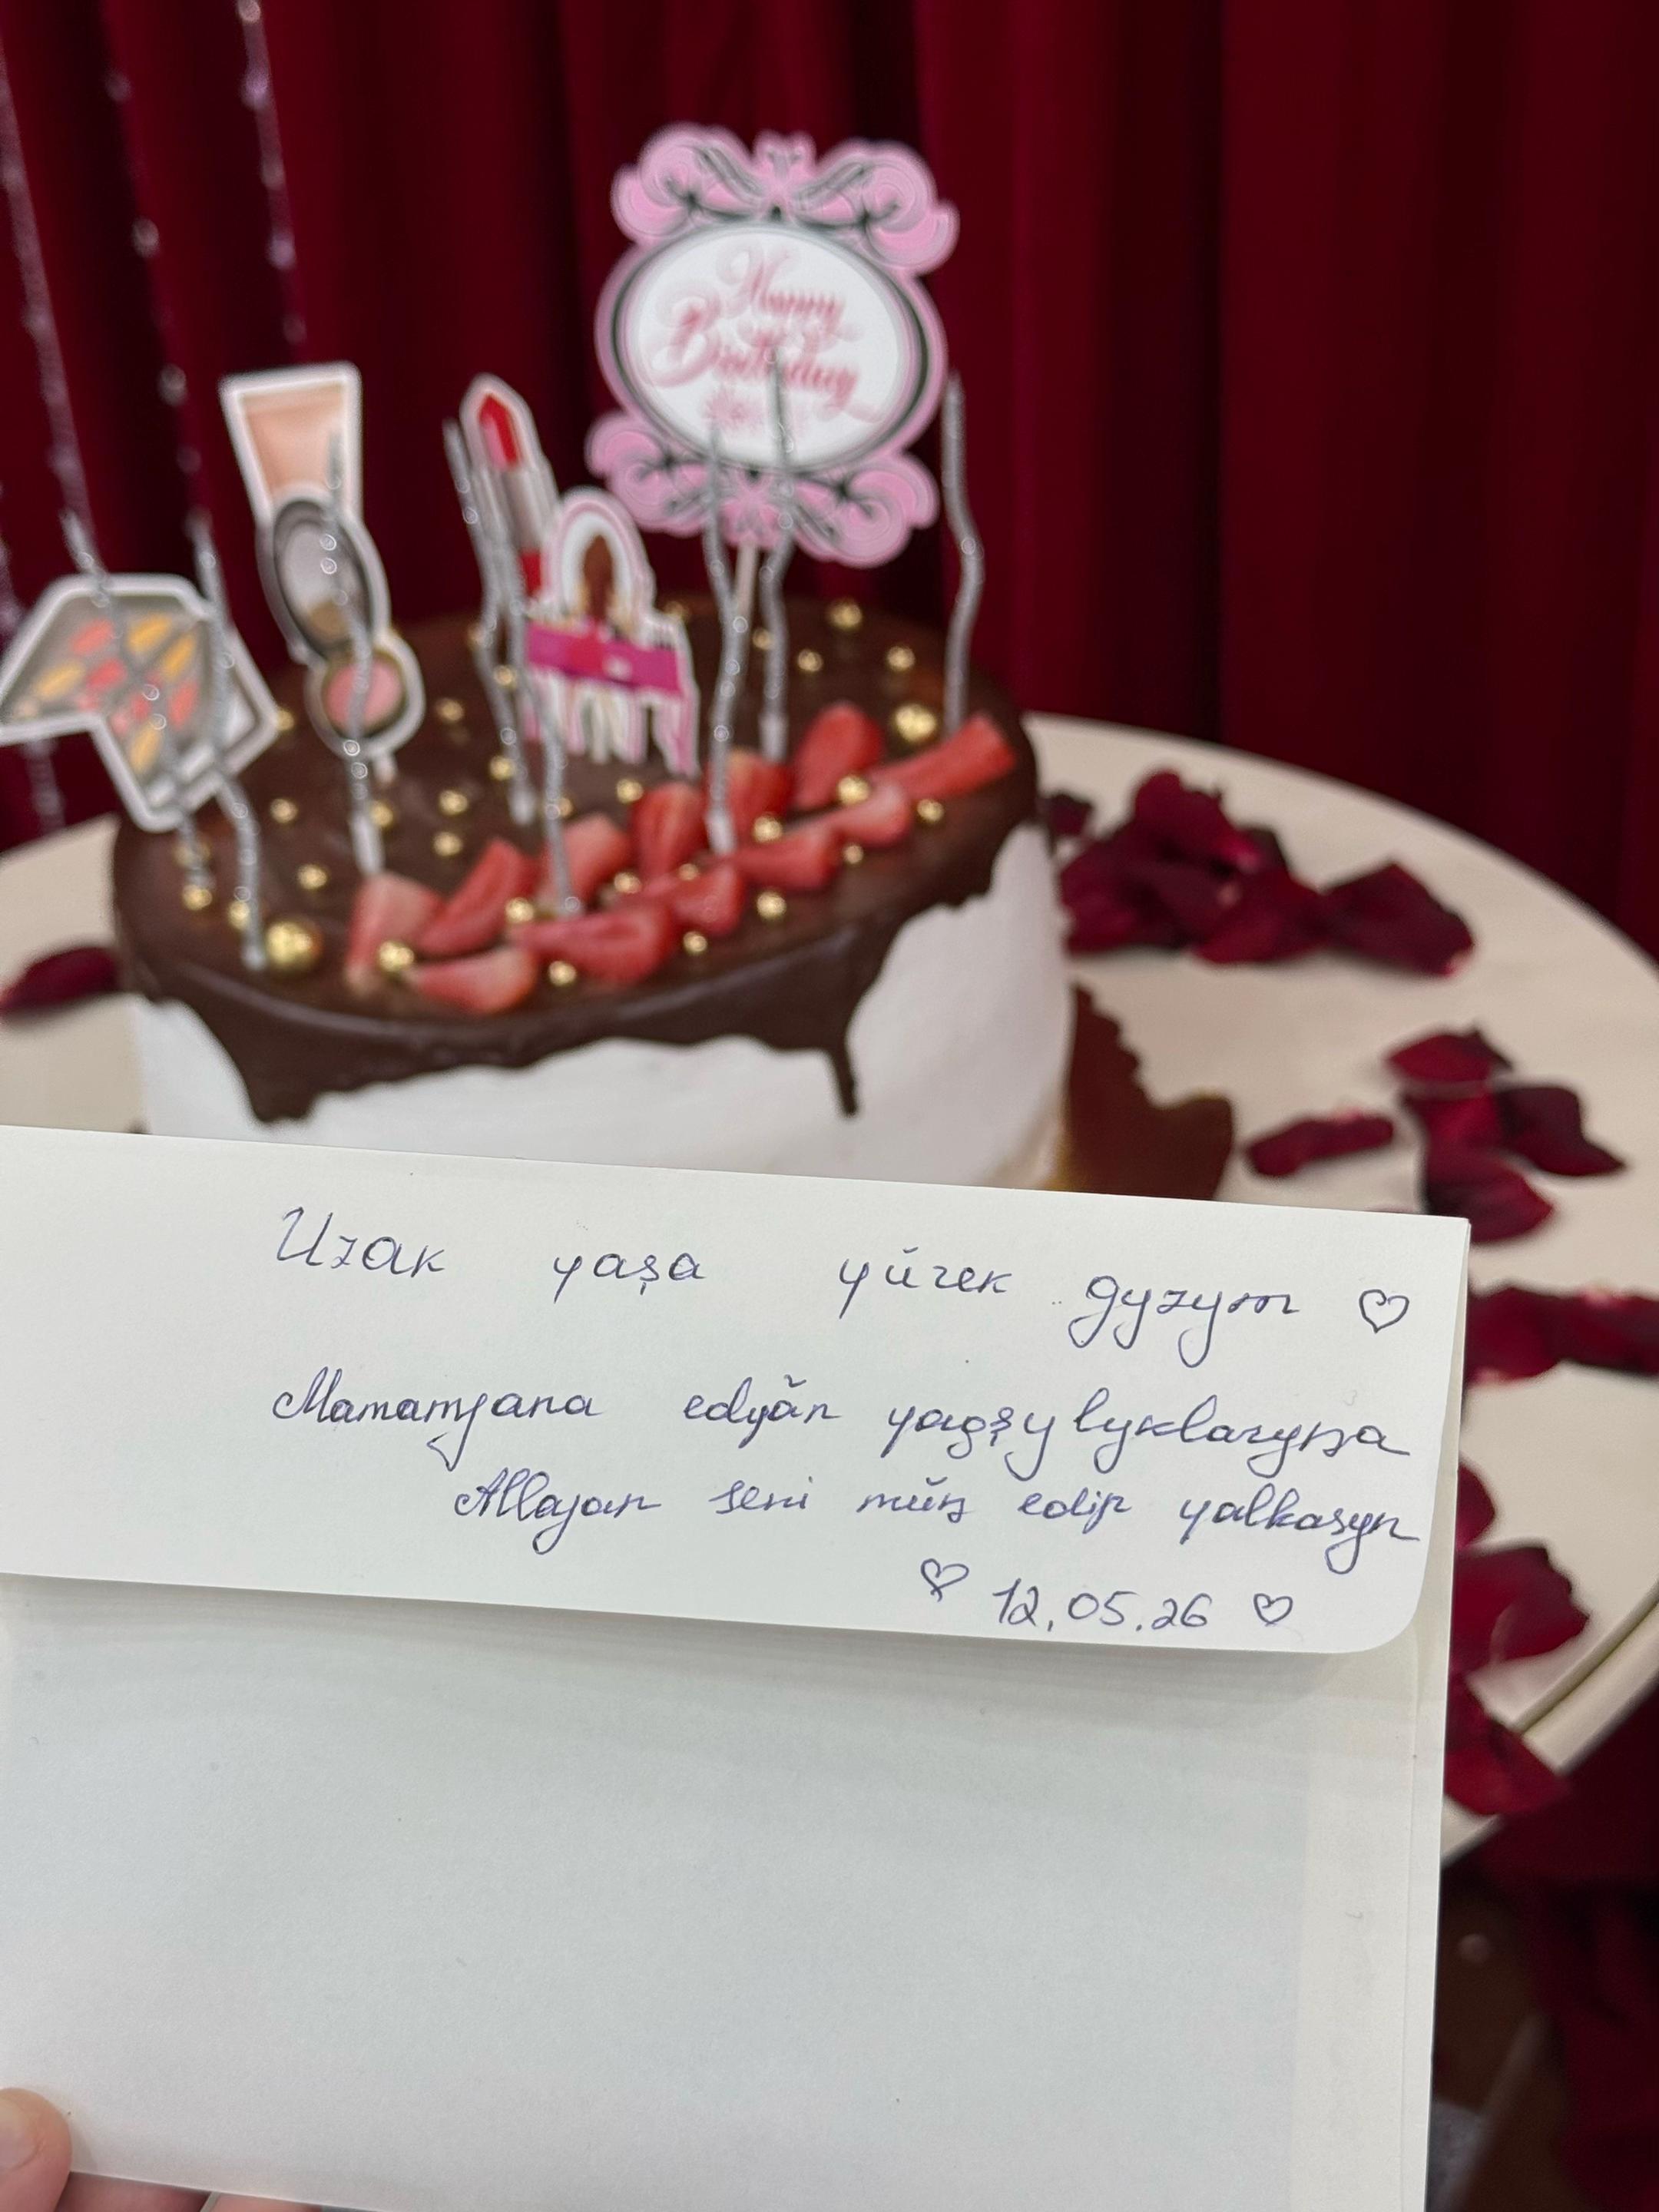 Happy
Birthday
Uzak yaşa ýürek gyzym ♡
Mamamjana edýän ýagşylyklaryňa
Allajan seni müň edip ýalkasyn
♡ 12.05.26 ♡